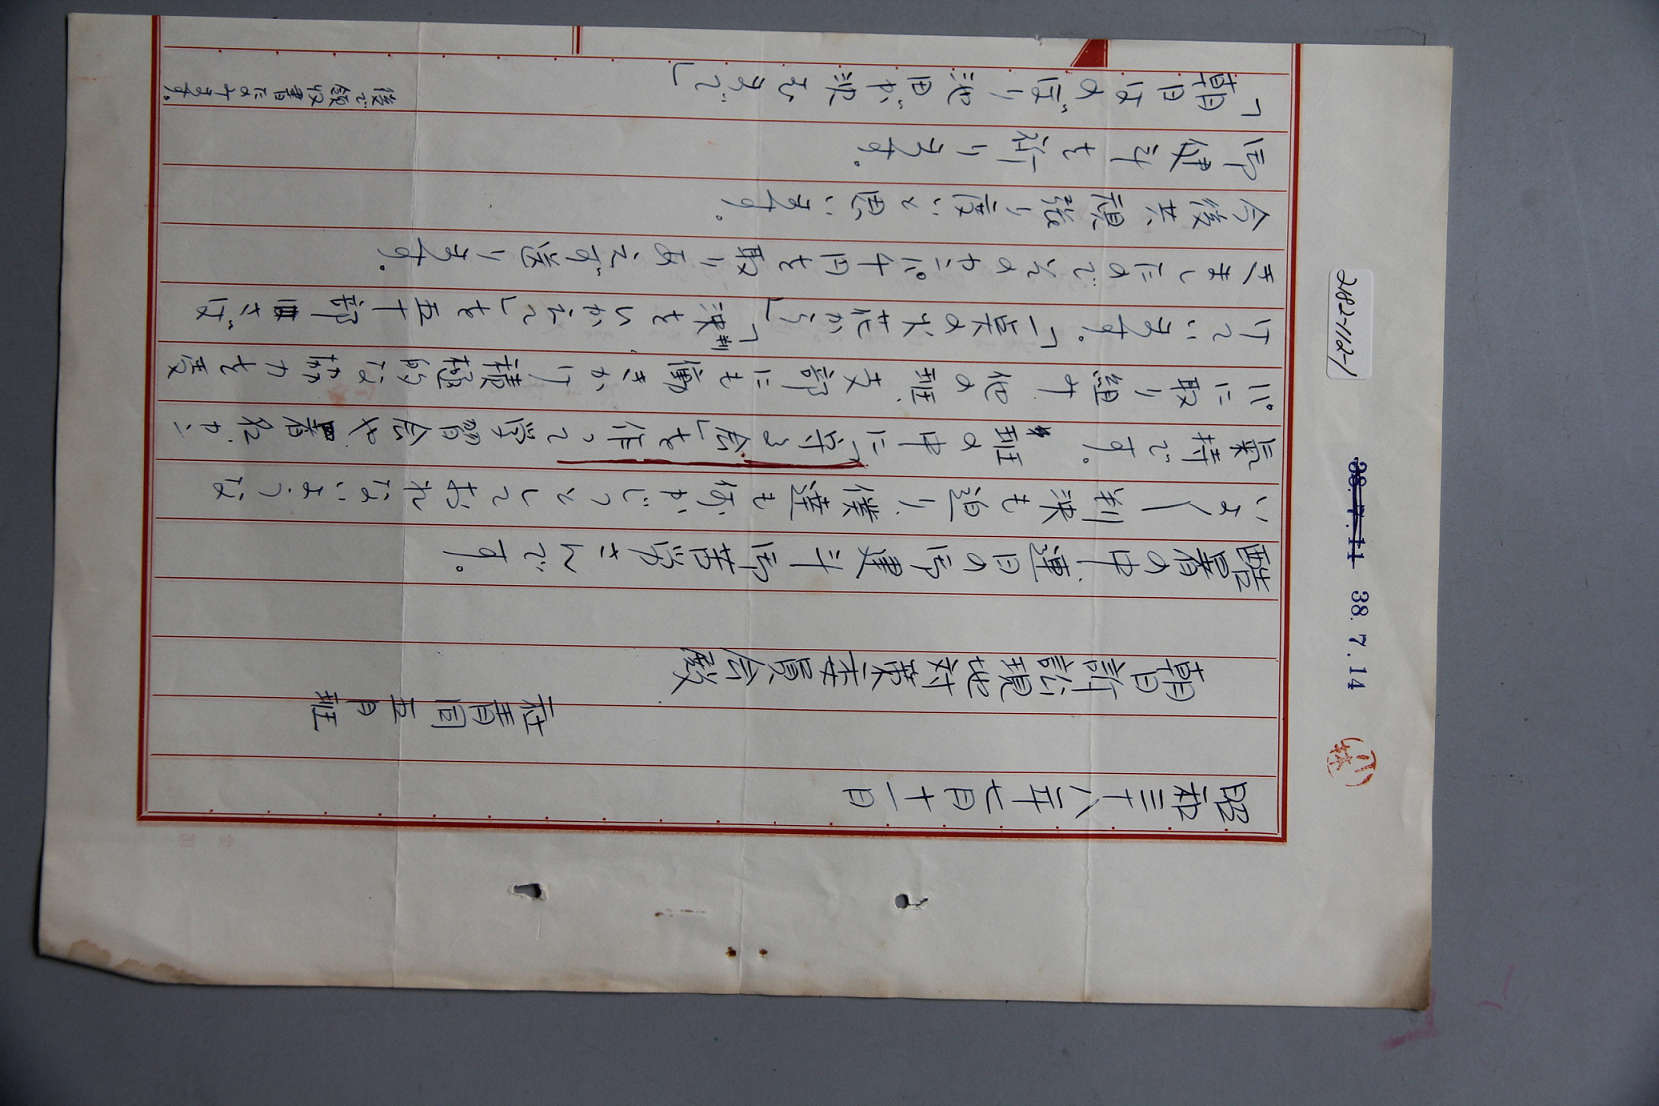 昭和三十八年七月十一日
社青同五月班
朝日訴訟現地対策委員会殿
酷暑の中、連日の御健斗御苦労さんです。
いよ〱判決も迫り、僕達も何かじっとしておれないような
氣持です。班の中に「守る会」を作って学習会や署名、カン
パに取り組み、他の班、支部にも働きかけ積極的な協力を受
けています。「一束の火花から」「判決をひかえて」を五十部さば
きましたのでそのカンパ千円を取りあえず送ります。
今後共頑張り度いと思います。
御健斗を祈ります。
「朝日はのぼり池田が沈むまで」
後で領収書たのみます。
282-112-1
38.7.11
38.7.14